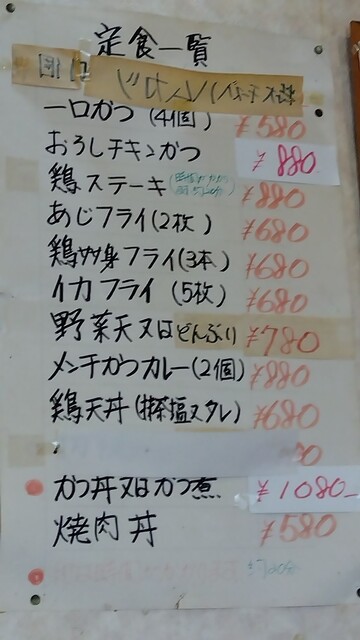 定食一覧
一口かつ (4個) ¥580
おろしチキンかつ ¥880
鶏ステーキ ¥880
あじフライ(2枚) ¥680
鶏ササ身フライ(3本) ¥680
イカフライ (5枚) ¥680
野菜天又はどんぶり ¥780
メンチかつカレー(2個) ¥880
鶏天丼(抹茶塩又タレ) ¥680
かつ丼又はかつ煮 ¥1080-
焼肉丼 ¥580